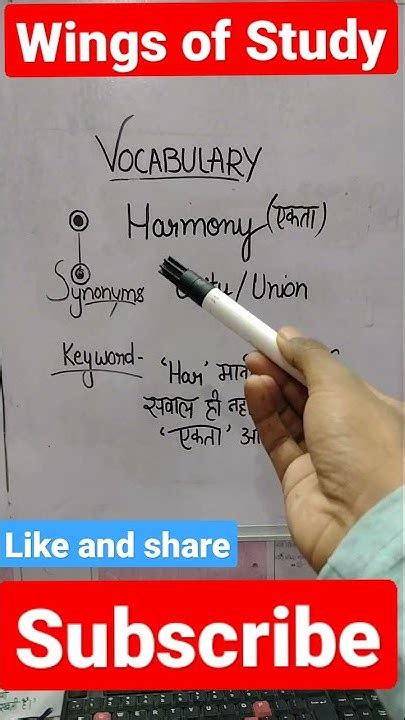 Wings of Study
VOCABULARY
Harmony (एकता)
Synonyms /Union
Keyword- 'Har'
सवाल ही
'एकता'
Like and share
Subscribe